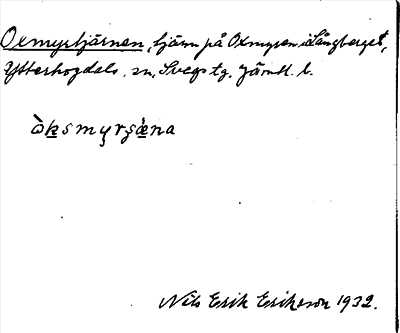 Oxmyrtjärnen, tjärn på Oxmyren i Långberget,
Ytterhogdals sn, Svegs tg. Jämtl. l.
òksmyrʂæ̀na
Nils Erik Eriksson 1932.